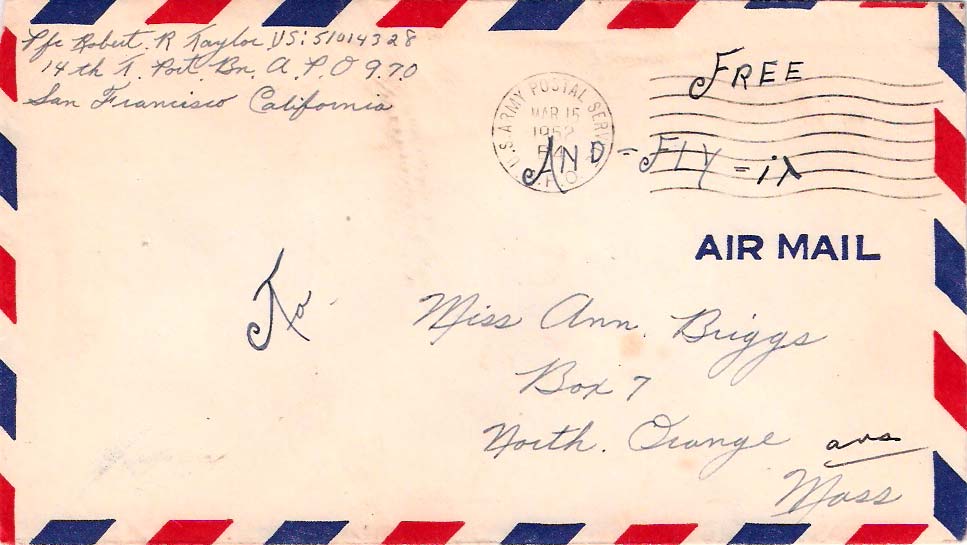 Pfc Robert. R Taylor US: 51014328
14th T. Port. Bn. A. P. O 970
San Francisco California
FREE
U.S. ARMY POSTAL SERVICE
MAR 15
1952
A.P.O.
AND - FLY - it
AIR MAIL
To
Miss Ann. Briggs
Box 7
North. Orange
ans
Mass